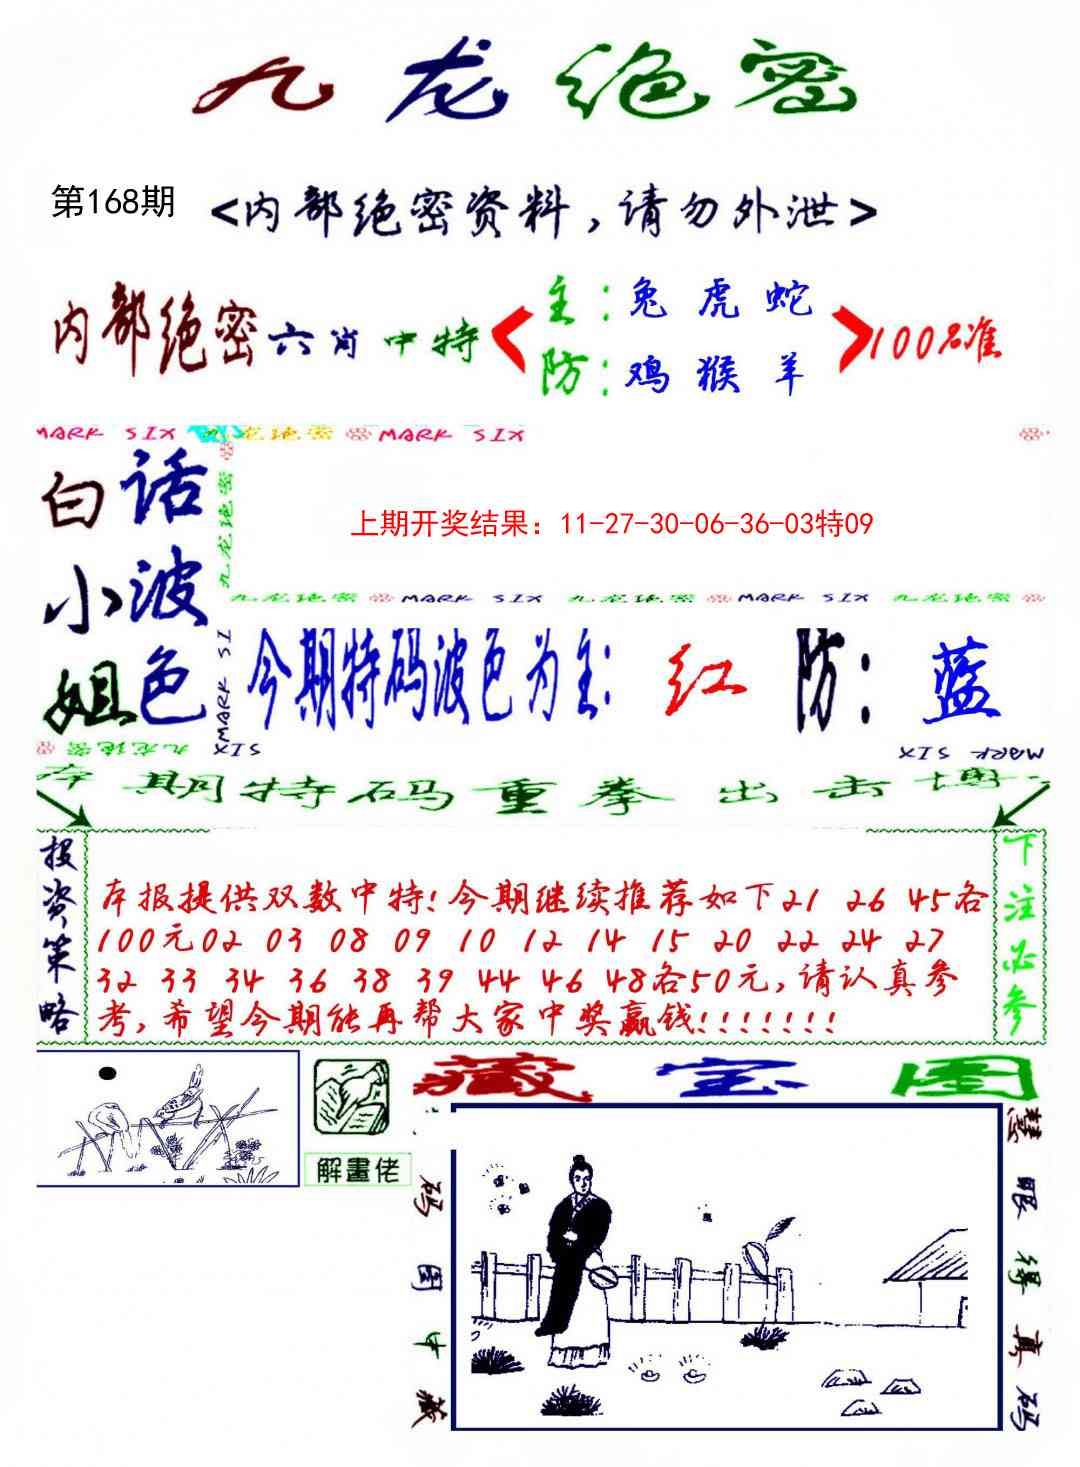 九龙绝密
第168期 <内部绝密资料,请勿外泄>
内部绝密六肖中特
主:兔 虎 蛇
防:鸡 猴 羊
100%准
MARK SIX 九龙绝密 MARK SIX
九龙绝密
白话
小波
姐色
上期开奖结果：11-27-30-06-36-03特09
九龙绝密 MARK SIX 九龙绝密 MARK SIX 九龙绝密
MARK SI
今期特码波色为主: 红 防: 蓝
九龙绝密 SIX MARK SIX
本期特码重拳出击博
投资策略
本报提供双数中特!今期继续推荐如下21 26 45各
100元02 03 08 09 10 12 14 15 20 22 24 27
32 33 34 36 38 39 44 46 48各50元,请认真参
考,希望今期能再帮大家中奖赢钱!!!!!!!
下注必参
解畫佬
藏宝图
码图中藏
慧眼得真码